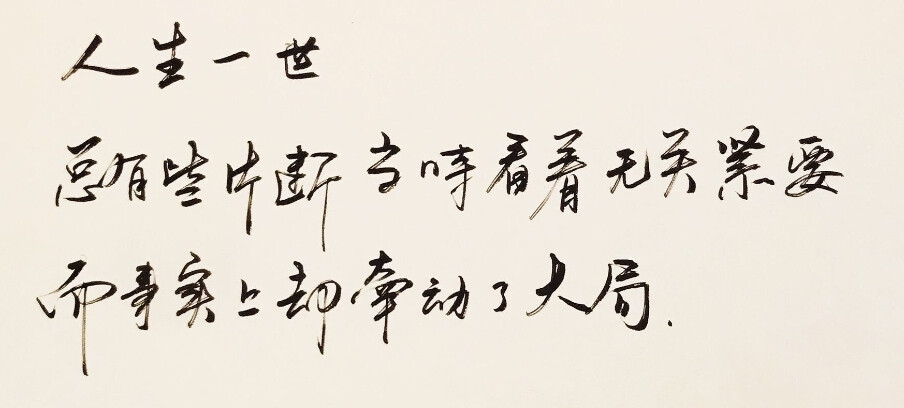 人生一世
总有些片断当时看着无关紧要
而事实上却牵动了大局.